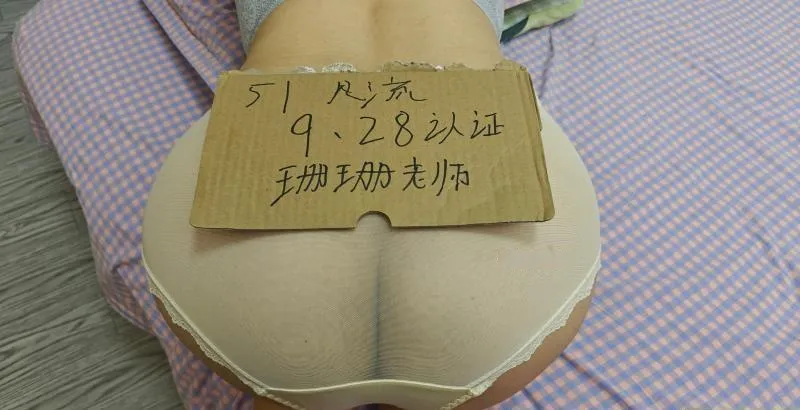 51 风流
9、28认证
珊珊老师